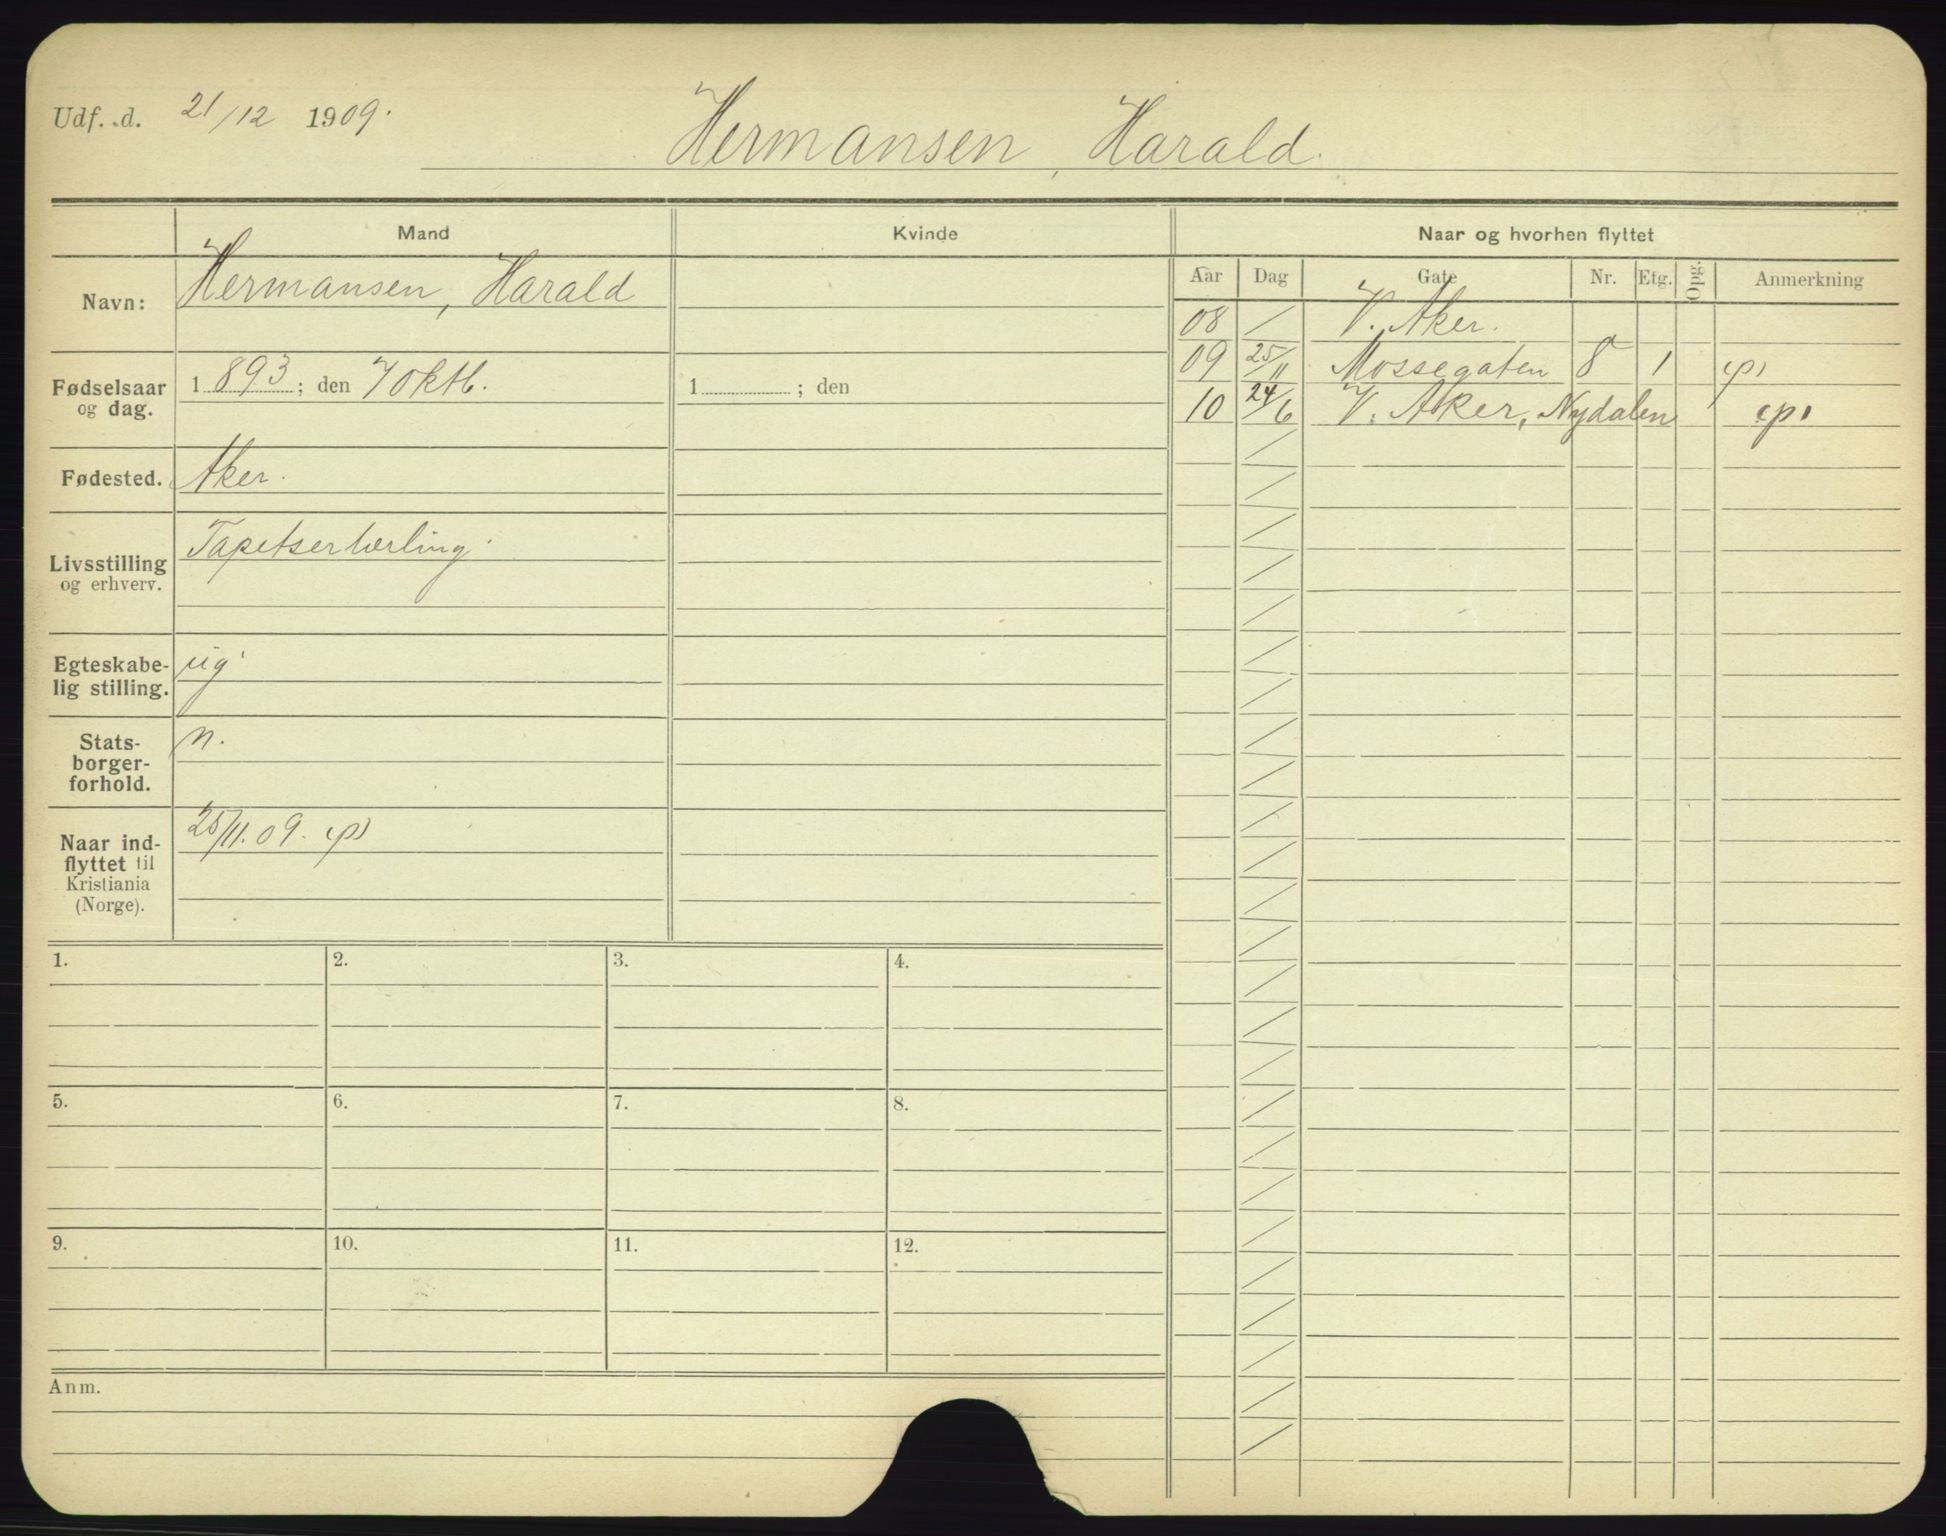 Udf. d. 21/12 1909.
Hermansen, Harald.
Mand
Kvinde
Naar og hvorhen flyttet
Navn: Hermansen, Harald
Aar Dag Gate Nr. Etg. Opg. Anmerkning
08 V. Aker.
09 25/11 Mossegaten 8 1 (p)
10 24/6 V. Aker, Nydalen (p)
Fødselsaar og dag. 1893; den 7 oktb.
1 ; den
Fødested. Aker.
Livsstilling og erhverv. Tapetserlærling.
Egteskabe-
lig stilling. ug.
Stats-
borger-
forhold. n.
Naar ind-
flyttet til
Kristiania
(Norge). 25/11.09. (p)
1. 2. 3. 4.
5. 6. 7. 8.
9. 10. 11. 12.
Anm.